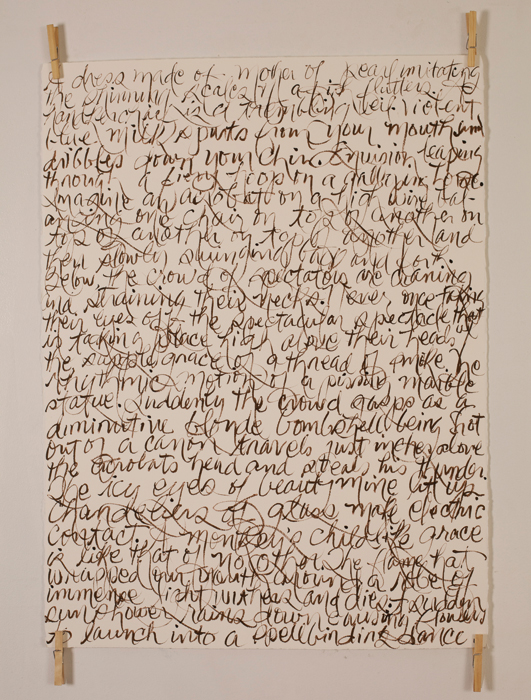 A dress made of mother of pearl imitating
the spinning scales of a fish flutters
and trembling veil violent
blue milk spurts from your mouth and
dribbles down your chin. leaping
through a fiery hoop on a
imagine an acrobat on a wire bal-
ancing one chair on top of another on
top of another on top of another and
then slowly swinging back and forth.
Below the crowd of spectators are craning
and straining their necks. never once taking
their eyes off the spectacular spectacle that
is taking place high above their heads
the supple grace of a thread of smoke. the
rhythmic motion of a marble
statue. Suddenly the crowd gasps as a
diminutive blonde bombshell being shot
out of a canon travels just metres above
the acrobats head and steals his thunder.
The icy eyes of beasts mine lit up.
Chandeliers of glass make electric
contact. A childlike grace
is like that of no other. The flame that
wrapped your around a robe of
immense light withers and dies. A sudden
sun shower rains down causing flowers
to launch into a spellbinding dance